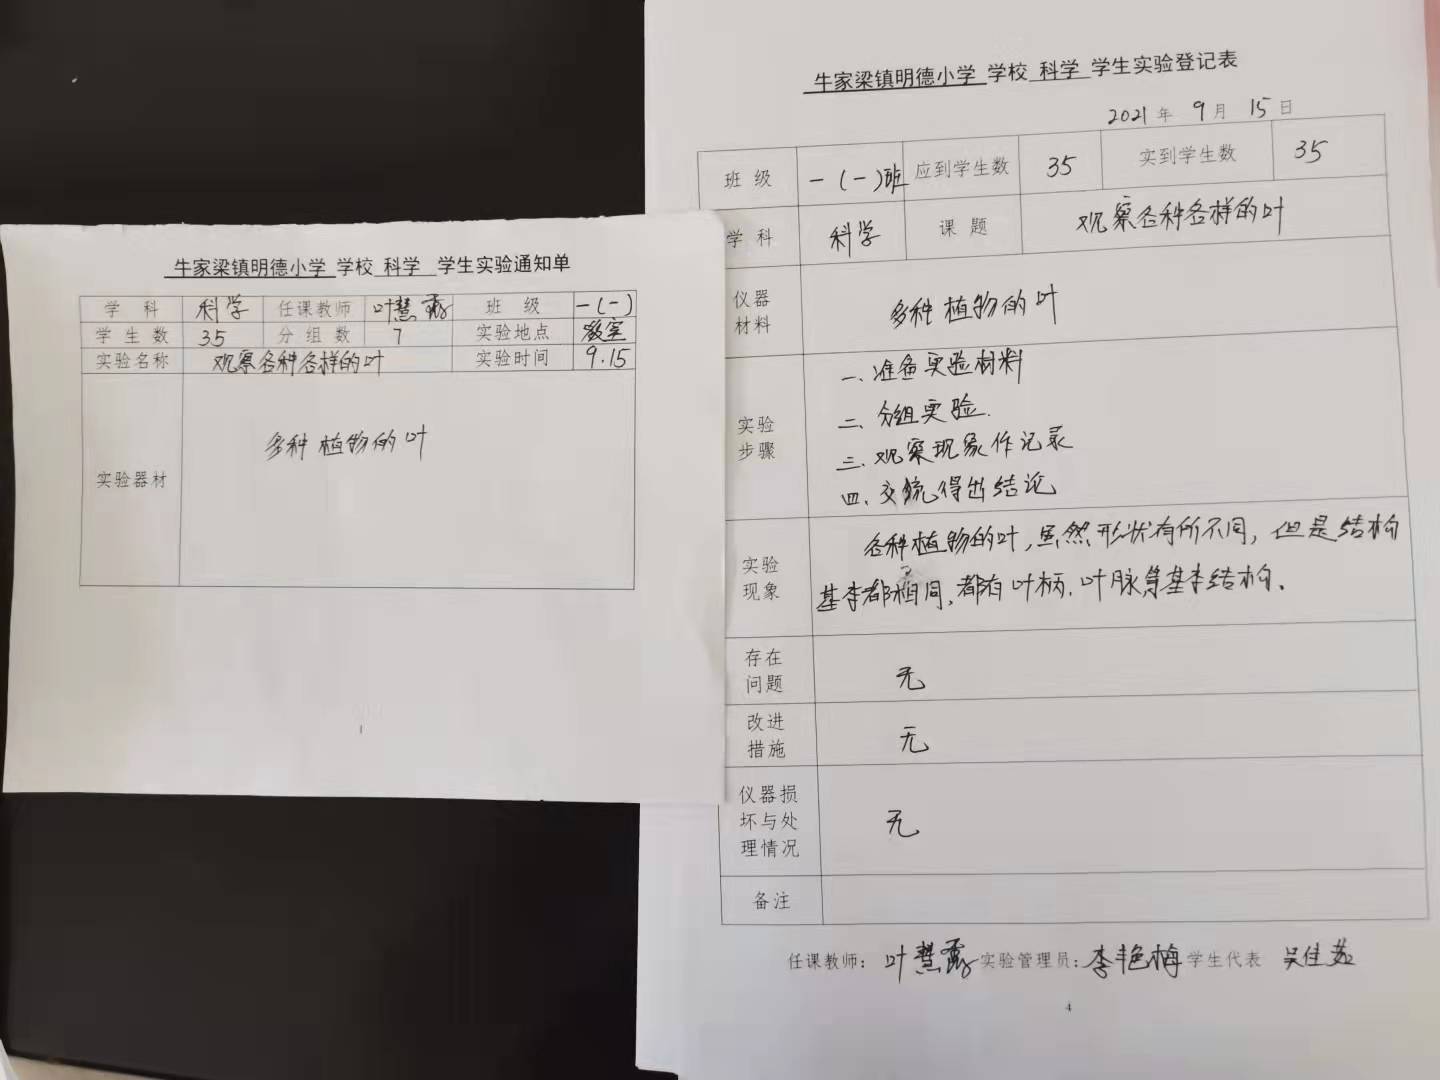 牛家梁镇明德小学 学校 科学 学生实验通知单
学 科 科学 任课教师 叶慧露 班 级 一(一)
学生数 35 分组数 7 实验地点 教室
实验名称 观察各种各样的叶 实验时间 9.15
实验器材 多种植物的叶
1
牛家梁镇明德小学 学校 科学 学生实验登记表
2021年 9月 15日
班 级 一(一)班 应到学生数 35 实到学生数 35
学 科 科学 课 题 观察各种各样的叶
仪器
材料
多种植物的叶
实验
步骤
一.准备实验材料
二.分组实验.
三.观察现象作记录
四.交流得出结论
实验
现象
各种植物的叶,虽然形状有所不同,但是结构
基本都相同,都有叶柄.叶脉等基本结构.
存在
问题
无
改进
措施
无
仪器损
坏与处
理情况
无
备注
任课教师: 叶慧露 实验管理员: 李艳梅 学生代表 吴佳
4